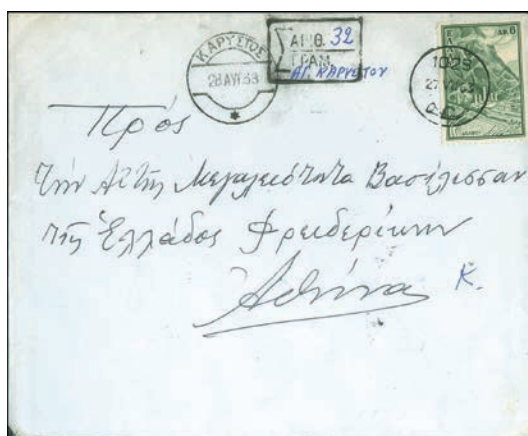 ΚΑΡΥΣΤΟΣ
ΑΡΙΘ. 32
ΓΡΑΜ.
ΑΓ. ΚΑΡΥΣΤΟΥ
1025
Πρός
τήν Αὐτῆς Μεγαλειότητα Βασίλισσαν
τῆς Ἑλλάδος Φρειδερίκην
Ἀθήνας
Κ.